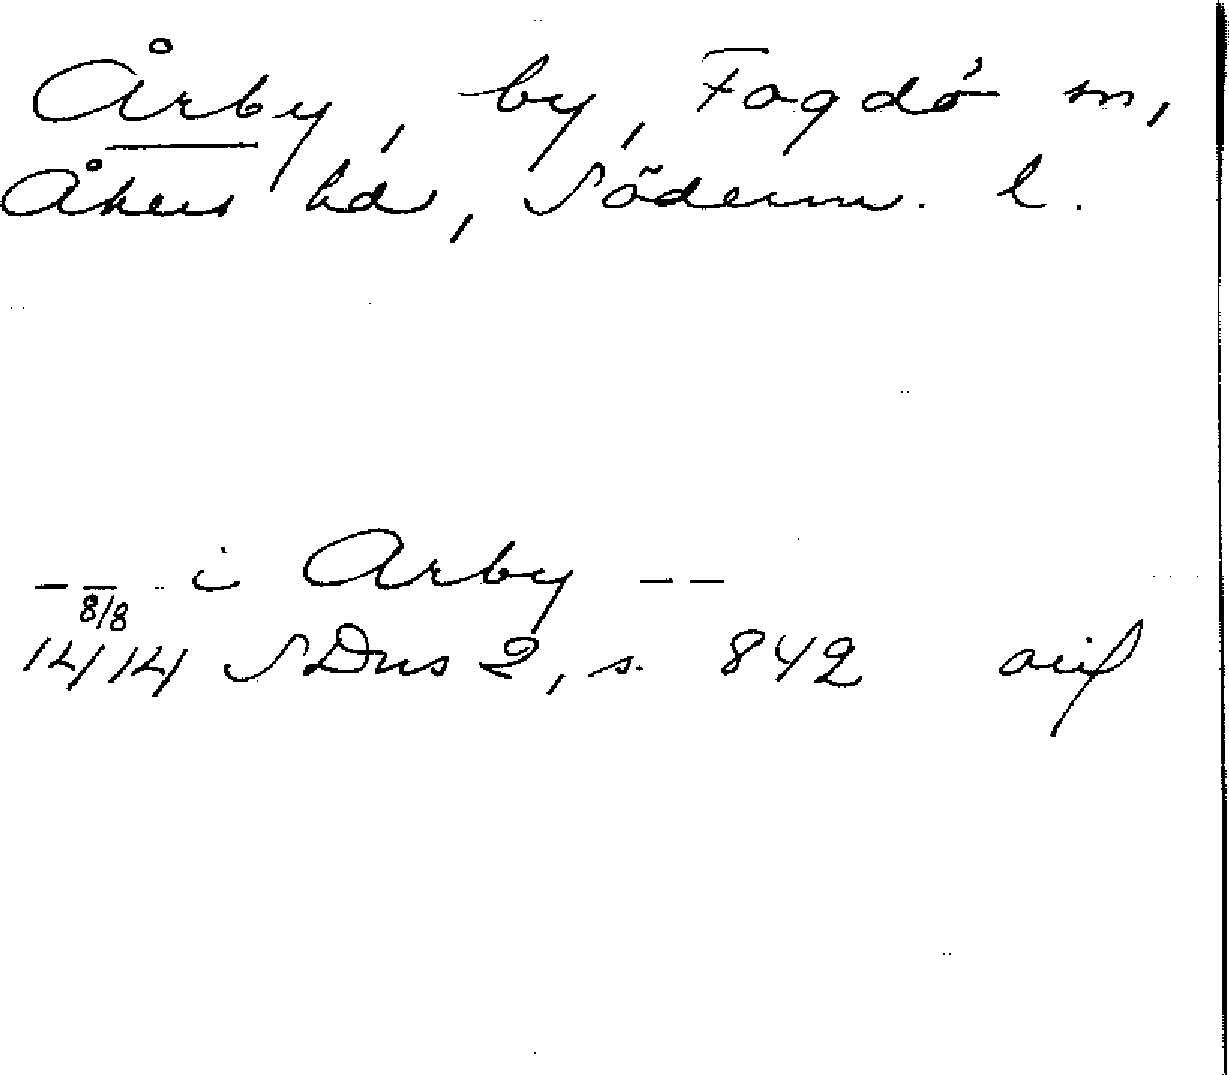 Årby, by, Fogdö sn,
Åkers hd, Söderm. l.
-- i Arby --
8/8
1414 SDns 2, s. 842 orig